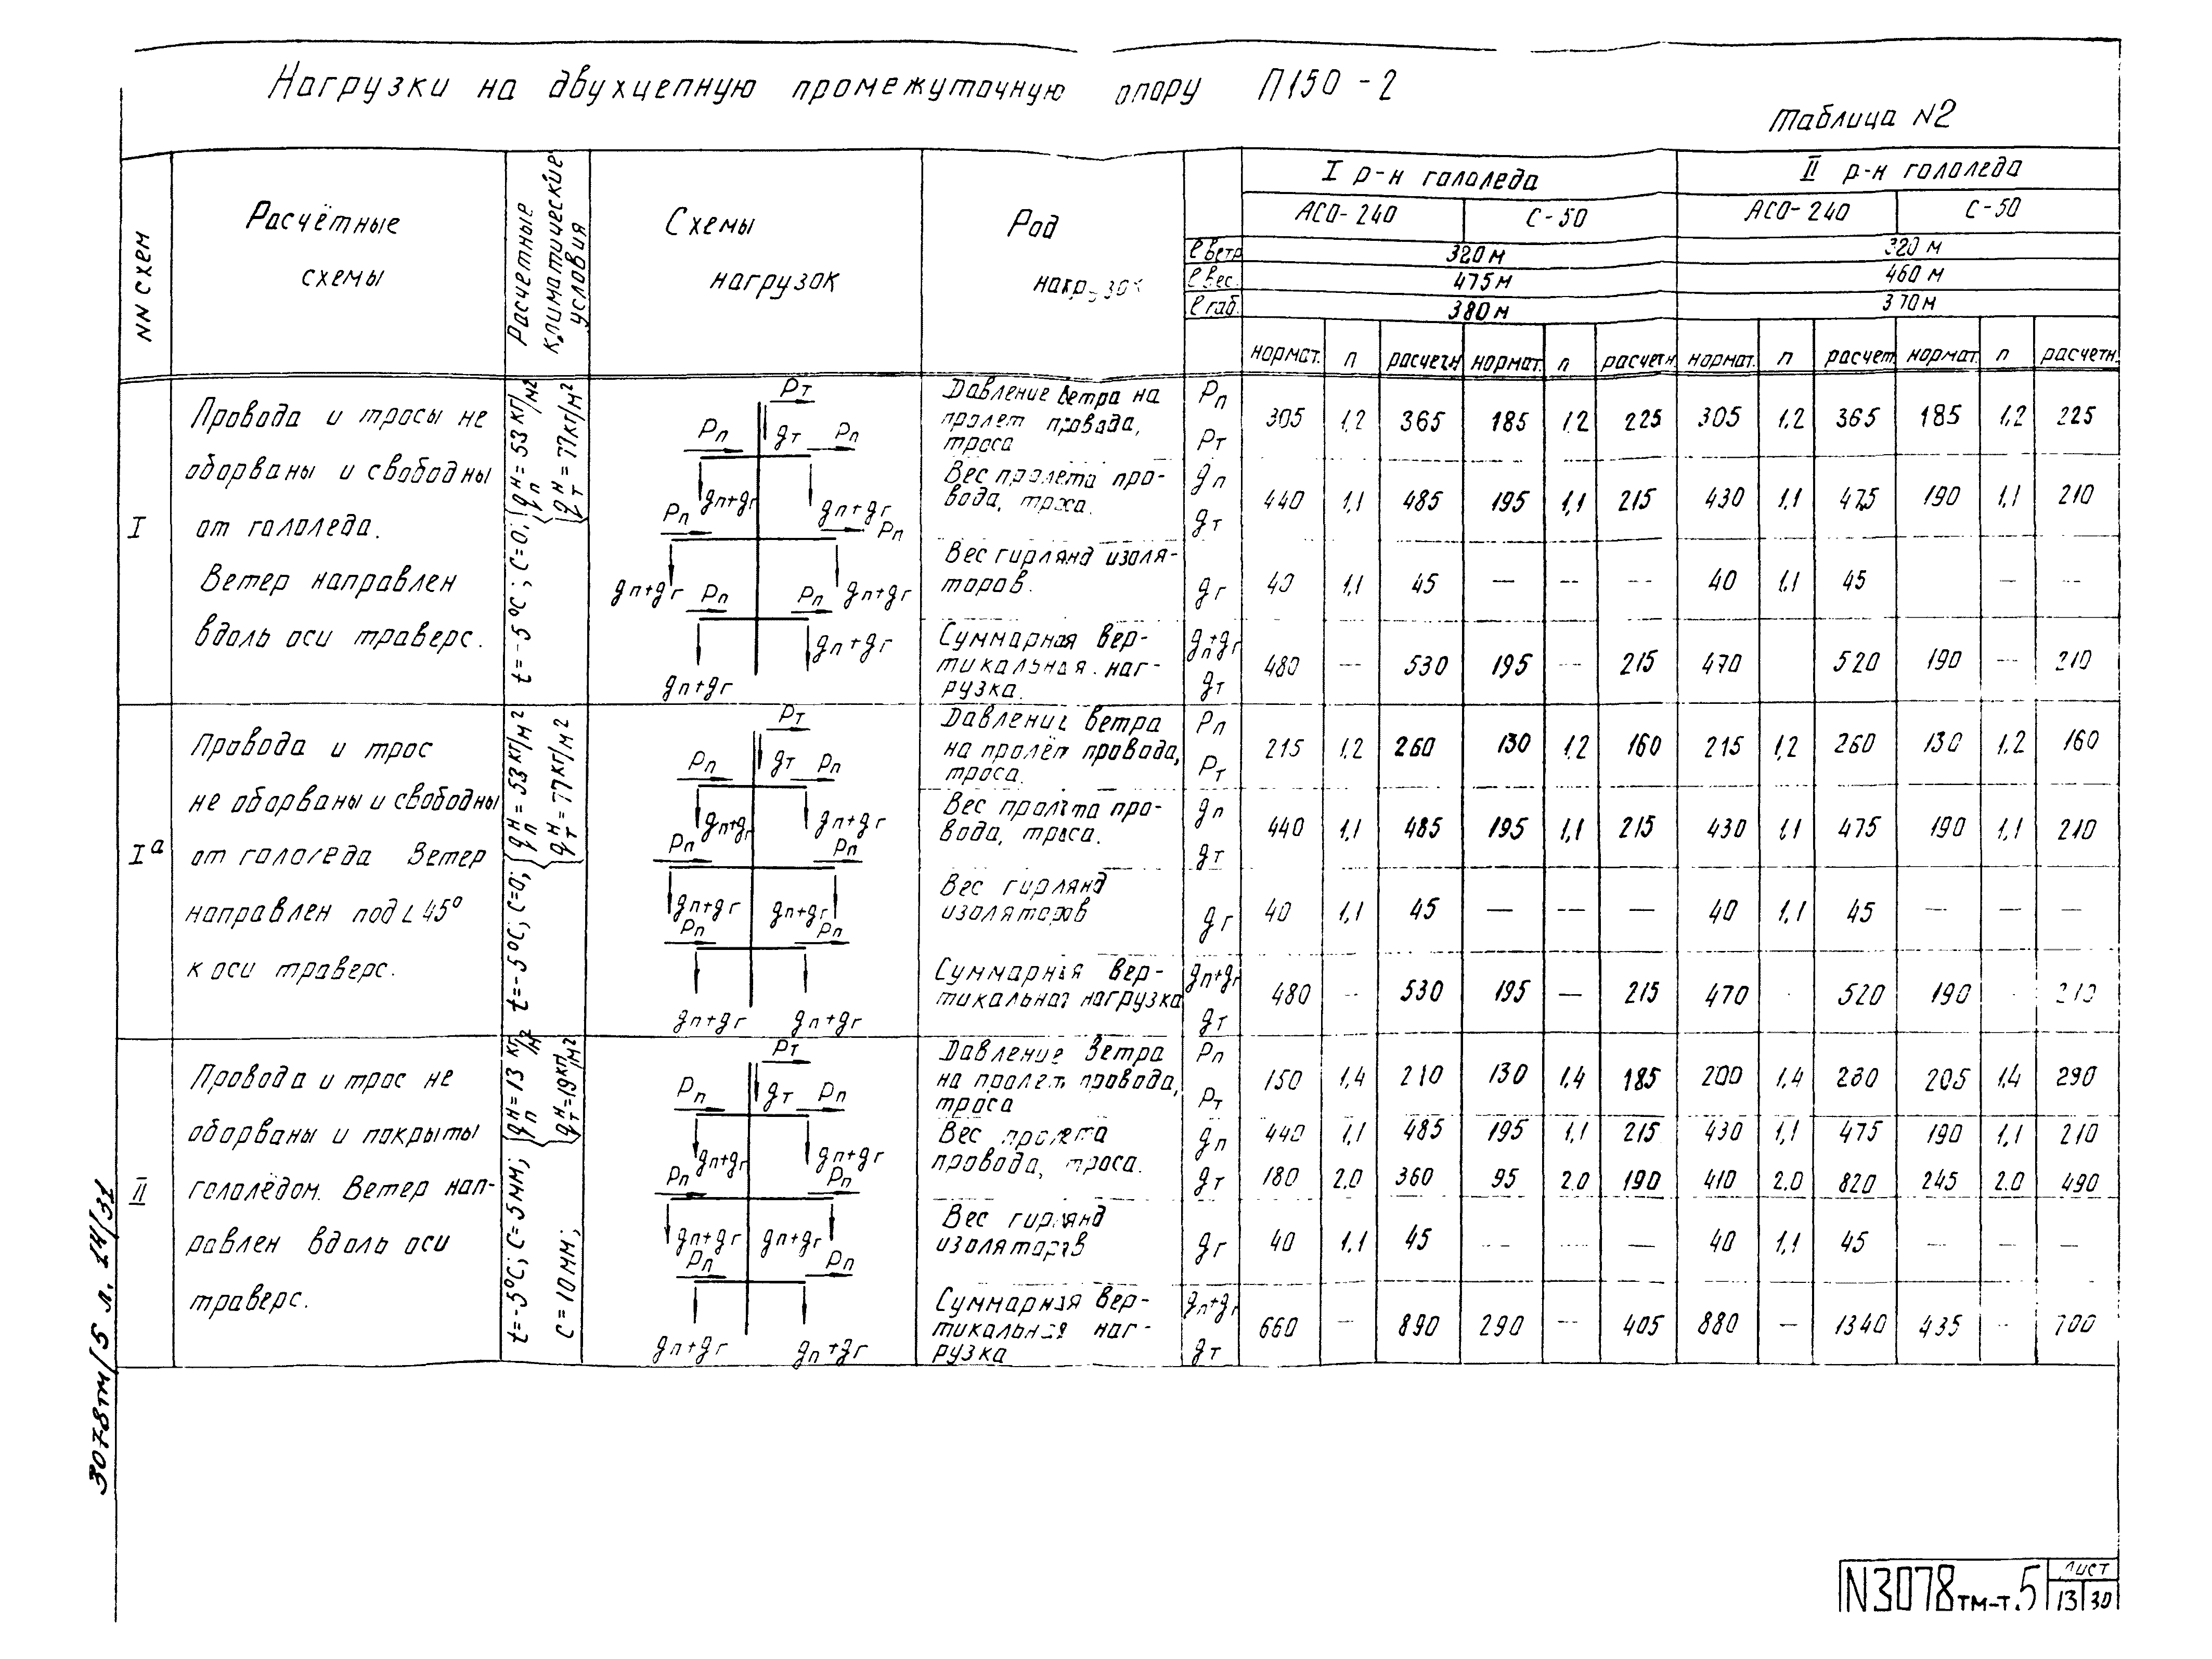 Нагрузки на двухцепную промежуточную опору П150-2
Таблица N2
NN схем
Расчётные
схемы
Расчетные
климатические
условия
Схемы
нагрузок
Род
нагрузок
I р-н гололеда
II р-н гололеда
АСО-240 С-50 АСО-240 С-50
ℓ ветр. 320 м 320 м
ℓ вес. 475 м 460 м
ℓ габ. 380 м 370 м
нормат. п расчетн нормат. п расчетн нормат. п расчет нормат. п расчетн.
I
Провода и тросы не
оборваны и свободны
от гололеда.
Ветер направлен
вдоль оси траверс.
t=-5°С; С=0; {qпн=53 кг/м² qтн=77кг/м²
Pт
Pп gт Pп
gп+gг gп+gг
Pп Pп
gп+gг Pп Pп gп+gг
gп+gг
gп+gг
Давление ветра на
пролет провода,
троса
Pп
Pт
305 1,2 365 185 1,2 225 305 1,2 365 185 1,2 225
Вес пролета про-
вода, троса.
gп
gт
440 1,1 485 195 1,1 215 430 1,1 475 190 1,1 210
Вес гирлянд изоля-
торов.
gг
40 1,1 45 — -- -- 40 1,1 45 — --
Суммарная вер-
тикальная наг-
рузка.
gп+gг
gт
480 — 530 195 -- 215 470 520 190 -- 210
Iа
Провода и трос
не оборваны и свободны
от гололеда Ветер
направлен под ∟45°
к оси траверс.
t=-5°С; С=0; {qпн=53кг/м² qтн=77кг/м²
Pт
Pп gт Pп
gп+gг gп+gг
Pп Pп
gп+gг gп+gг
Pп Pп
gп+gг gп+gг
Давление ветра
на пролёт провода,
троса.
Pп
Pт
215 1,2 260 130 1,2 160 215 1,2 260 130 1,2 160
Вес пролета про-
вода, троса.
gп
gт
440 1,1 485 195 1,1 215 430 1,1 475 190 1,1 210
Вес гирлянд
изоляторов
gг
40 1,1 45 — -- — 40 1,1 45 — — —
Суммарная вер-
тикальная нагрузка
gп+gг
gт
480 -- 530 195 — 215 470 - 520 190 - 210
II
Провода и трос не
оборваны и покрыты
гололёдом. Ветер нап-
равлен вдоль оси
траверс.
t=-5°С; С=5мм; {qпн=13 кг/м² qтн=19кг/м²
С=10мм;
Pт
Pп gт Pп
gп+gг gп+gг
Pп Pп
gп+gг gп+gг
Pп Pп
gп+gг gп+gг
Давление Ветра
на пролет провода,
троса
Pп
Pт
150 1,4 210 130 1,4 185 200 1,4 280 205 1,4 290
Вес пролета
провода, троса.
gп
440 1,1 485 195 1,1 215 430 1,1 475 190 1,1 210
gт
180 2.0 360 95 2.0 190 410 2.0 820 245 2.0 490
Вес гирлянд
изоляторов
gг
40 1.1 45 -- -- — 40 1,1 45 — — —
Суммарная вер-
тикальная наг-
рузка
gп+gг
gт
660 — 890 290 -- 405 880 — 1340 435 -- 700
3078тм/5 л. 14/31
N3078тм-т.5
Лист
13 30